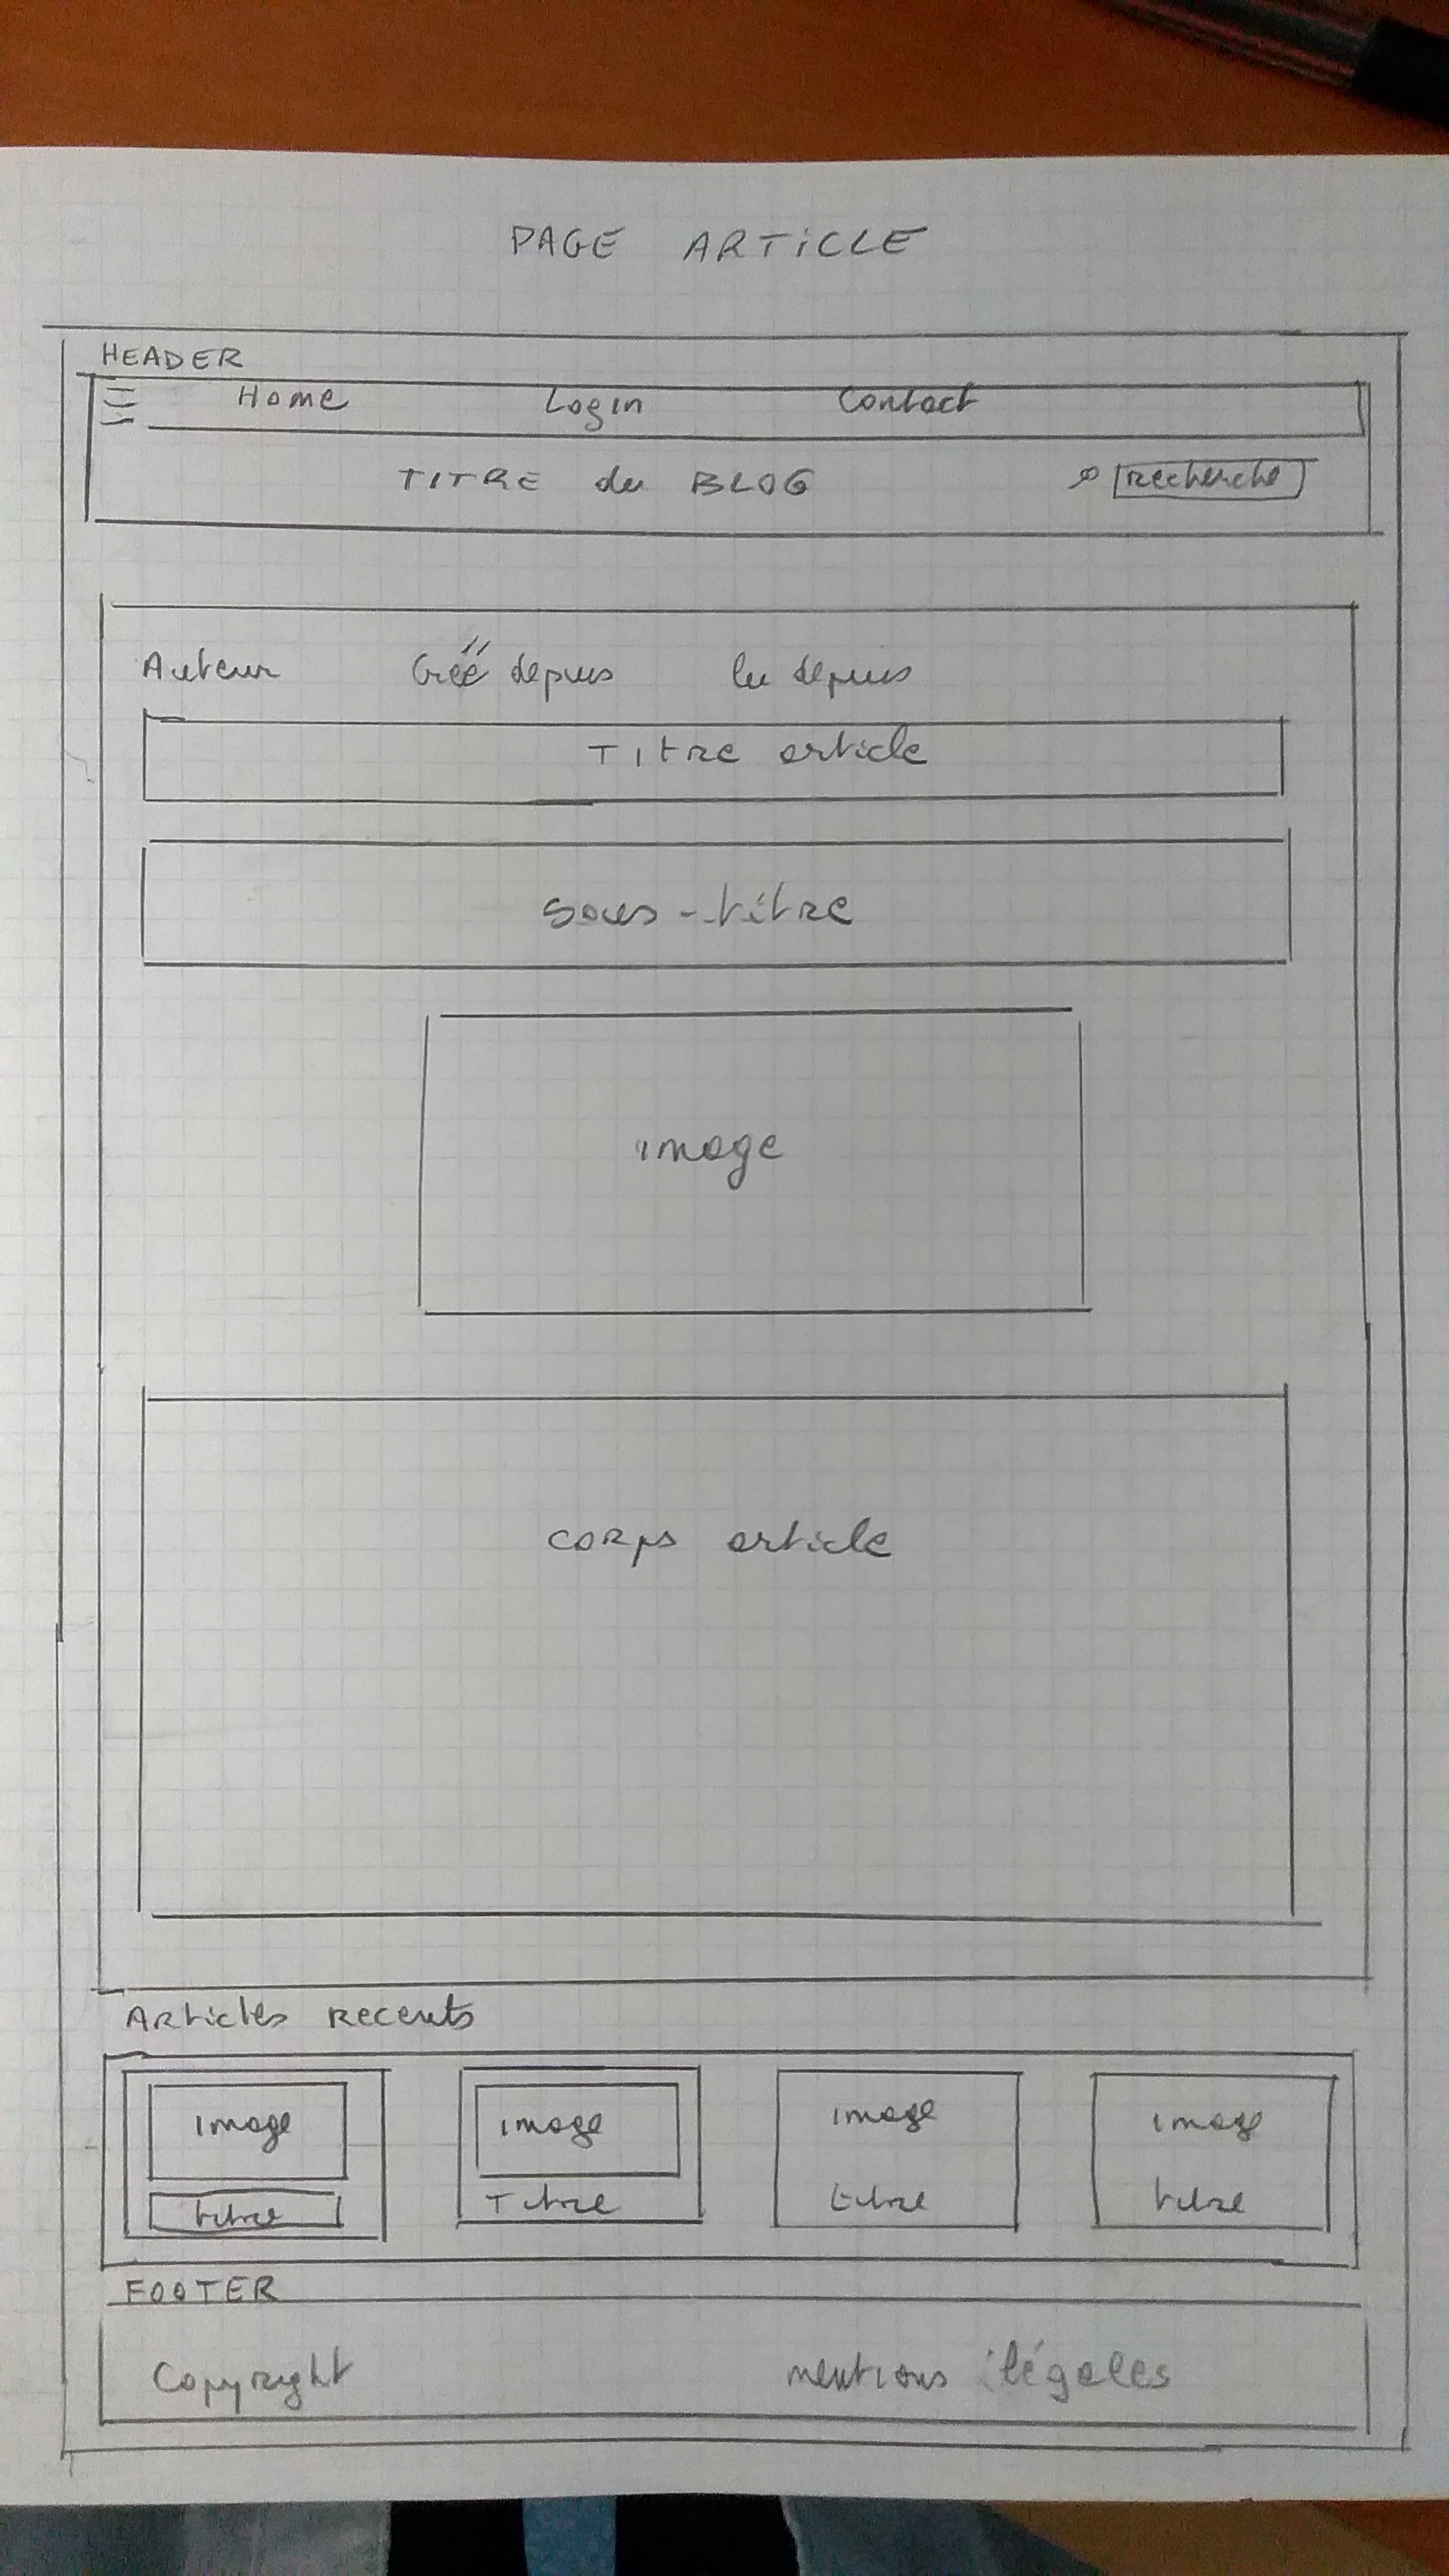 PAGE ARTICLE
HEADER
Home Login Contact
TITRE du BLOG recherche
Auteur Créé depuis lu depuis
Titre article
sous-titre
image
corps article
Articles recents
image image image image
titre Titre titre titre
FOOTER
Copyright mentions légales